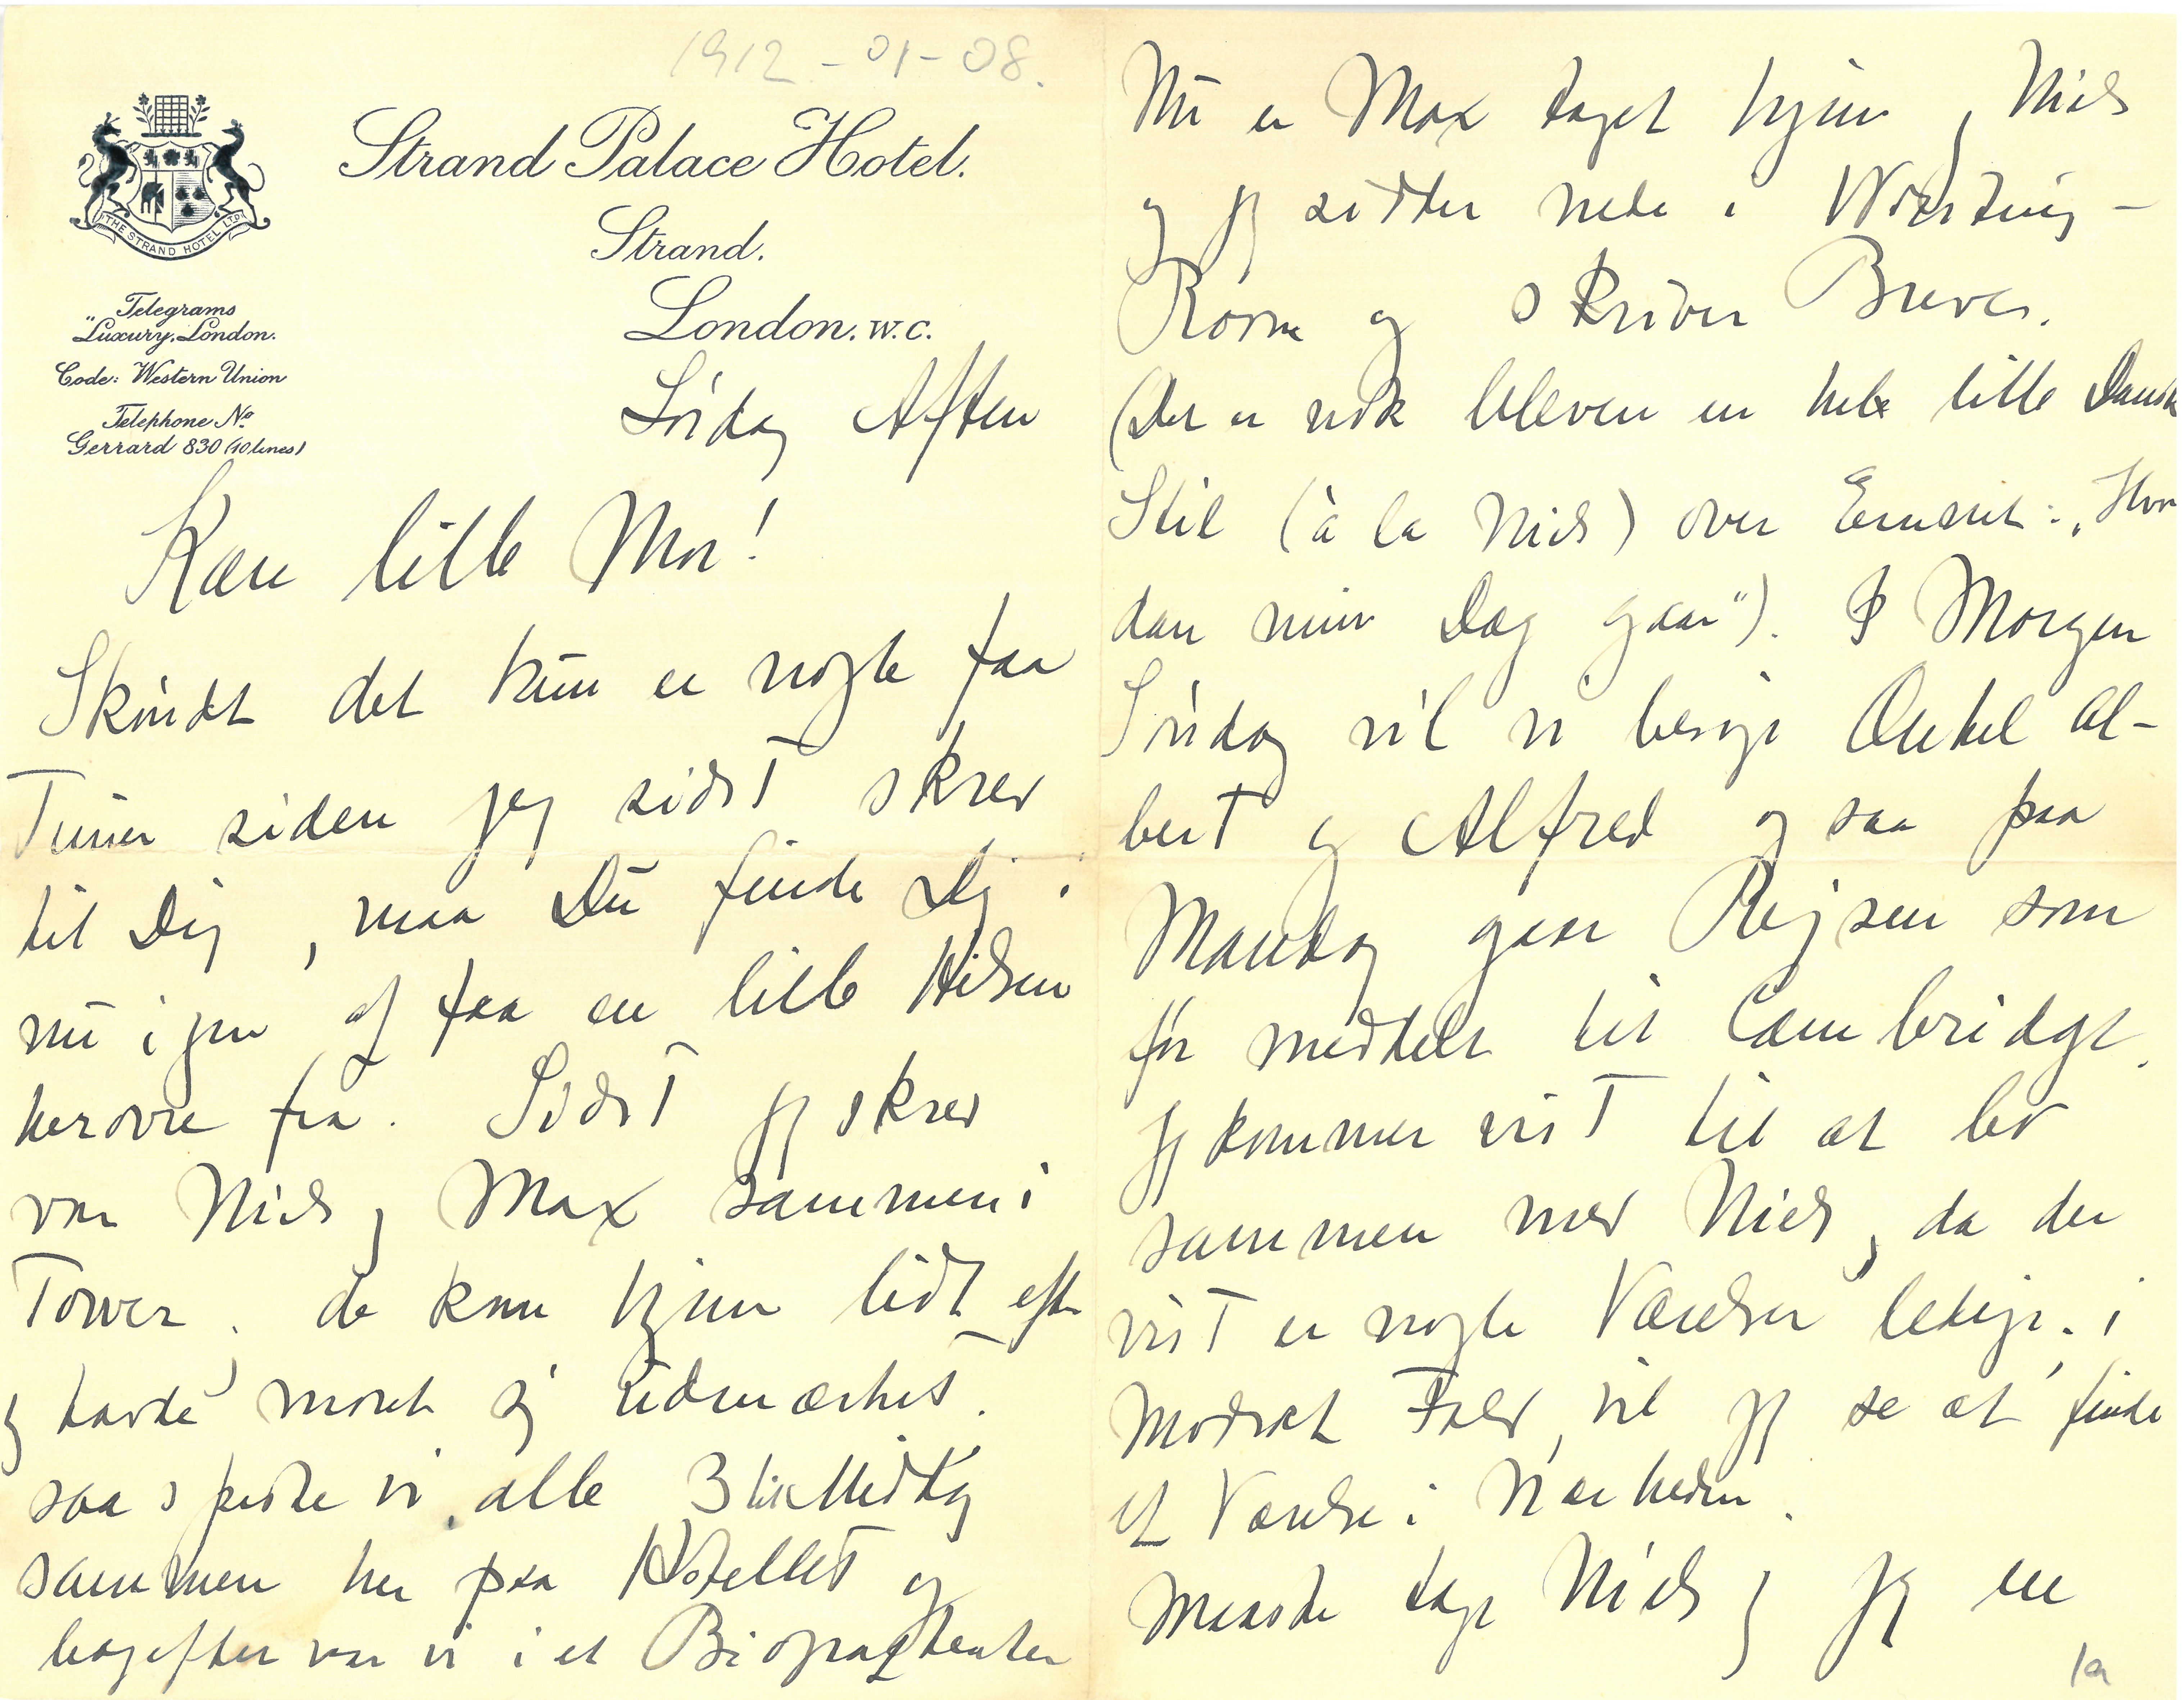 1912-01-08.
THE STRAND HOTEL LTD
Strand Palace Hotel.
Strand.
London. W.C.
Telegrams
"Luxury, London.
Code: Western Union
Telephone No.
Gerrard 830 (10 lines)
Lördag Aften
Kære lille Mor!
Skøndt det kun er nogle faa
Timer siden jeg sidst skrev
til Dig, maa Du finde Dig i
nu igen at faa en lille Hilsen
herovre fra. Sidst jeg skrev
var Niels og Max sammen i
Tower. de kom hjem lidt efter
og havde moret sig udmærket.
saa spiste vi alle 3 til Middag
sammen her paa Hotellet og
bagefter var vi i et Biografteater
Nu er Max taget hjem, Niels
og jeg sidder nede i Writing-
Room og skriver Breve.
(Det er nok bleven en hel lille Dansk
Stil (à la Niels) over Emnet: "Hvor
dan min Dag gaar"). I Morgen
Søndag vil vi besøge Onkel Al-
bert og Alfred og saa paa
Mandag gaar Rejsen som
før meddelt til Cambridge.
jeg kommer vist til at bo
sammen med Niels, da der
vist er nogle Værelser ledige; i
Modsat Fald vil jeg se at finde
et Værelse i Nærheden.
Maaske tage Niels og jeg en
1a